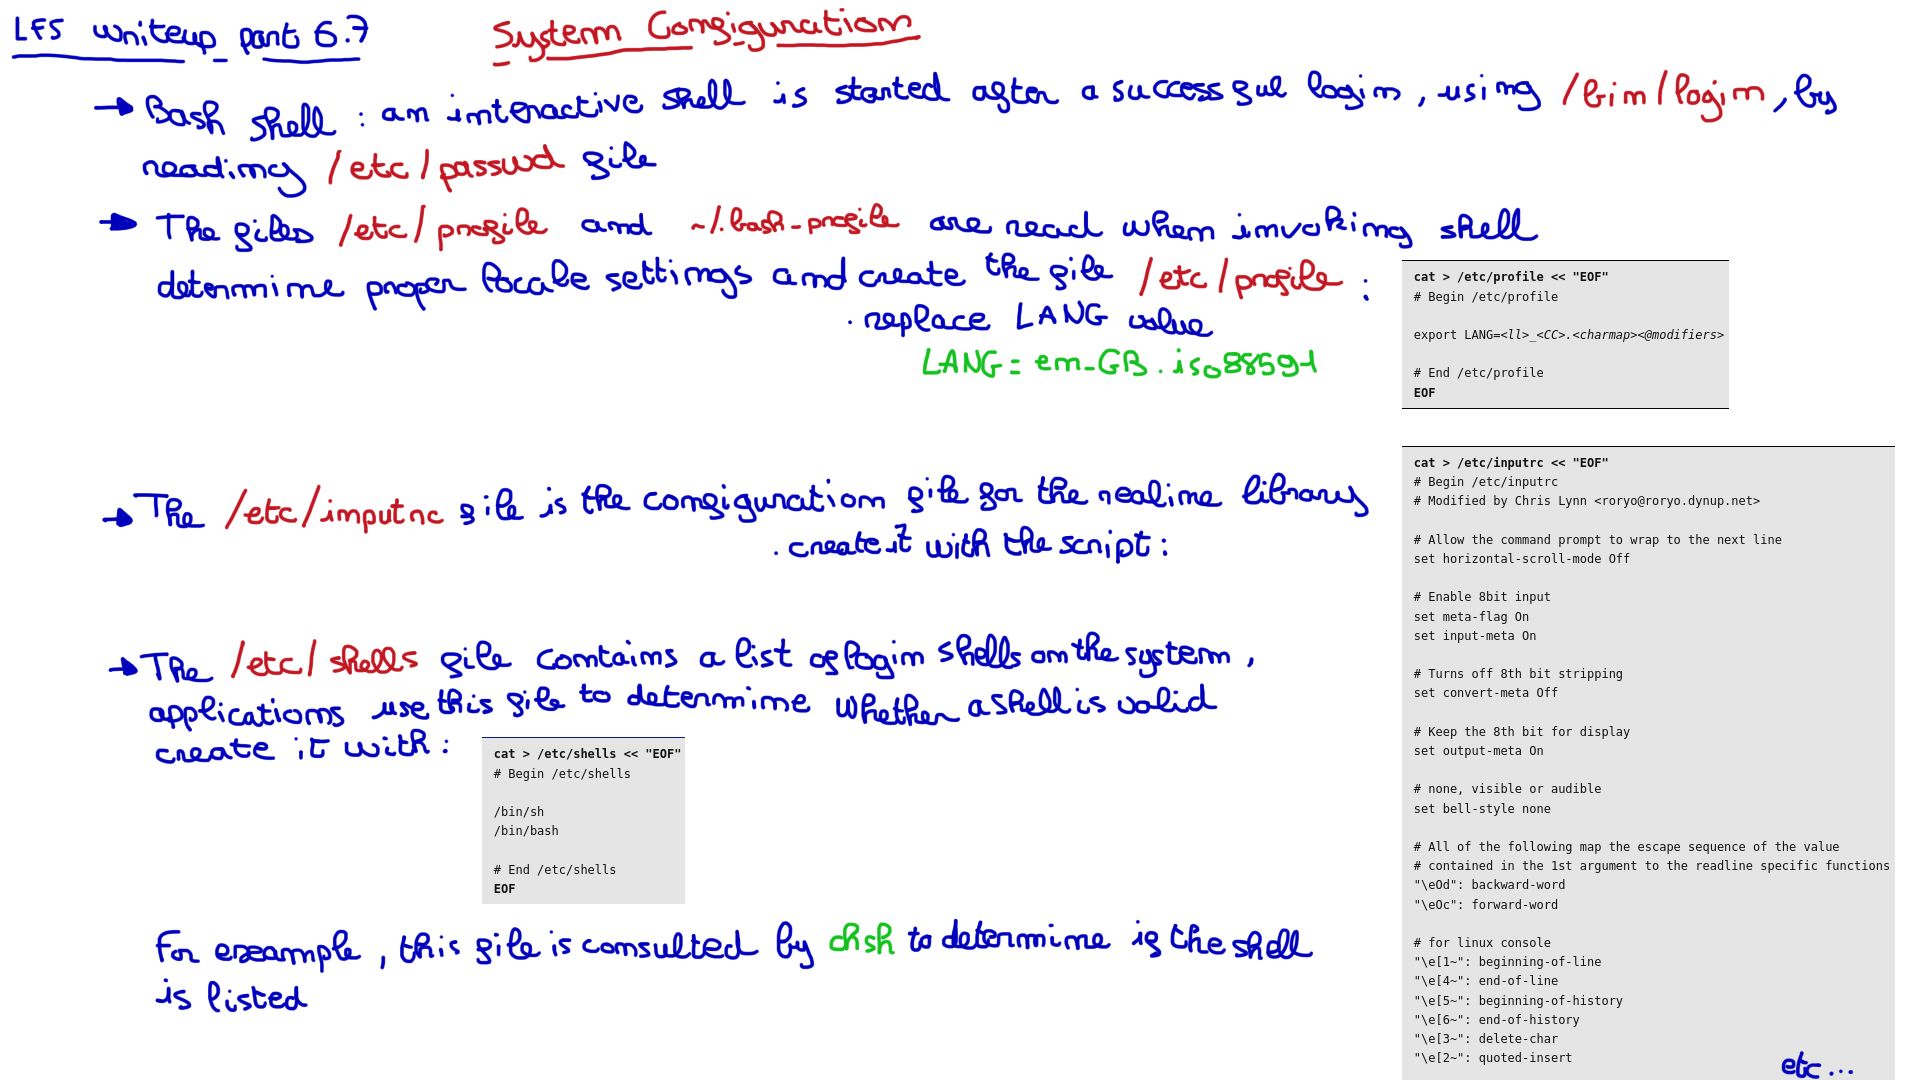 LFS writeup part 6.7
System Configuration
→ Bash shell : an interactive shell is started after a successful login, using /bin/login, by
reading /etc/passwd file
→ The files /etc/profile and ~/.bash_profile are read when invoking shell
determine proper locale settings and create the file /etc/profile :
. replace LANG value
LANG = en_GB.iso88591
cat > /etc/profile << "EOF"
# Begin /etc/profile
export LANG=<ll>_<CC>.<charmap><@modifiers>
# End /etc/profile
EOF
→ The /etc/inputrc file is the configuration file for the realine library
. create it with the script :
cat > /etc/inputrc << "EOF"
# Begin /etc/inputrc
# Modified by Chris Lynn <roryo@roryo.dynup.net>
# Allow the command prompt to wrap to the next line
set horizontal-scroll-mode Off
# Enable 8bit input
set meta-flag On
set input-meta On
# Turns off 8th bit stripping
set convert-meta Off
# Keep the 8th bit for display
set output-meta On
# none, visible or audible
set bell-style none
# All of the following map the escape sequence of the value
# contained in the 1st argument to the readline specific functions
"\eOd": backward-word
"\eOc": forward-word
# for linux console
"\e[1~": beginning-of-line
"\e[4~": end-of-line
"\e[5~": beginning-of-history
"\e[6~": end-of-history
"\e[3~": delete-char
"\e[2~": quoted-insert
etc ...
→ The /etc/shells file contains a list of login shells on the system ,
applications use this file to determine whether a shell is valid
create it with :
cat > /etc/shells << "EOF"
# Begin /etc/shells
/bin/sh
/bin/bash
# End /etc/shells
EOF
For example , this file is consulted by chsh to determine if the shell
is listed